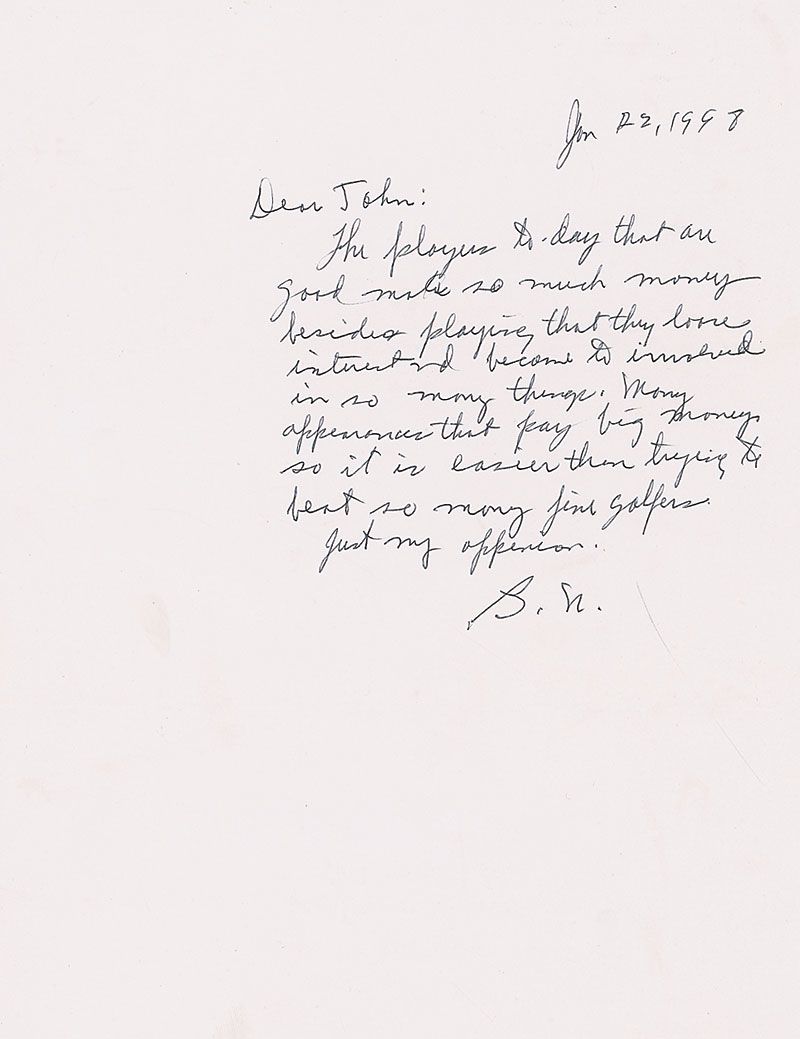 Jan 22, 1998
Dear John:
The players to-day that are
good make so much money
besides playing that they loose
interest nd become to involved
in so many things. Many
appearances that pay big money
so it is easier then trying to
beat so many fine golfers.
Just my oppenion.
B. N.